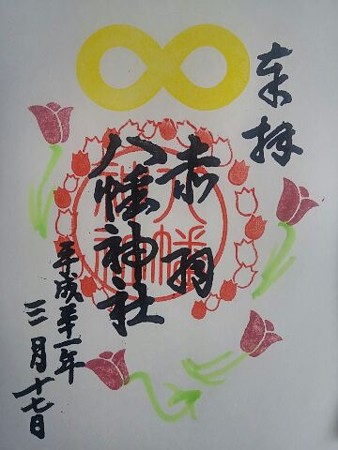 奉拝
赤羽
八幡神社
平成三十一年
三月十七日
八幡